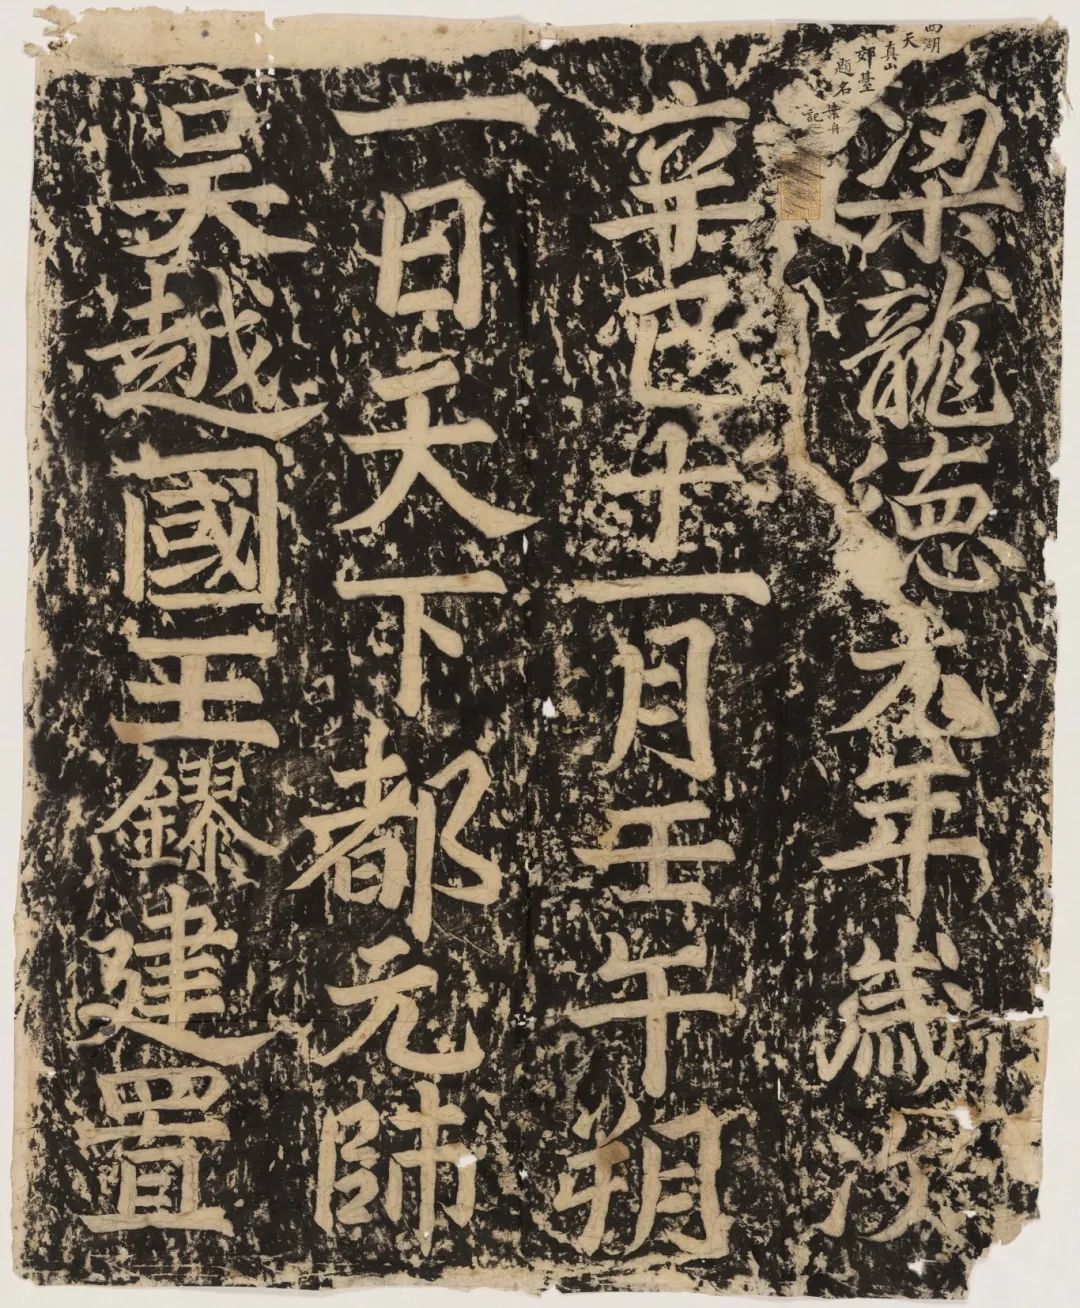 西湖
天真山
郊臺
題名
葉舟
記
梁龍德元年歲次
辛巳十一月壬午朔
一日天下都元帥
吳越國王鏐建置